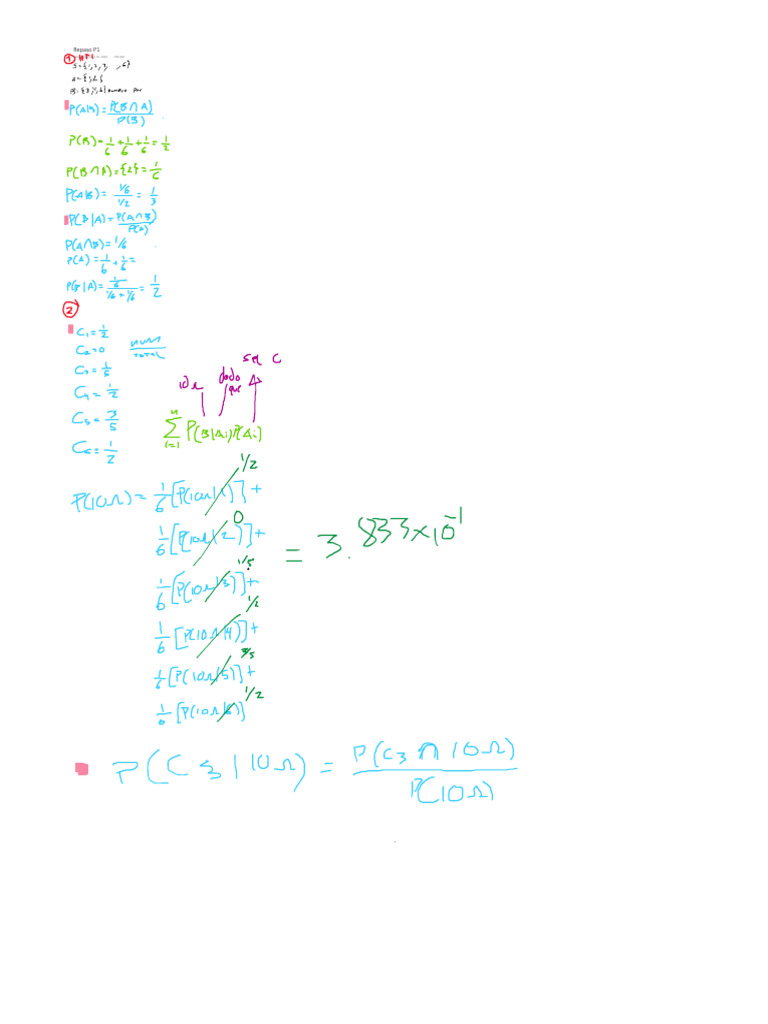 Repaso P1
1
S={1,2,3, ... ,6}
A={1,2}
B={2,4,6} numero par
P(A|B)=P(B∩A)/P(B)
P(B)=1/6+1/6+1/6=1/2
P(B∩A)={2}=1/6
P(A|B)=(1/6)/(1/2)=1/3
P(B|A)=P(A∩B)/P(A)
P(A∩B)=1/6
P(A)=1/6+1/6=
P(B|A)=(1/6)/(1/6+1/6)=1/2
2
C1=1/2
C2=0 num/total
C3=1/5
C4=1/2
C5=3/5
C6=1/2
dado que
n∑i=1 P(B|Ai)P(Ai)
P(10Ω)=1/6[P(10Ω|1)]+ 1/2
1/6[P(10Ω|2)]+ 0
1/6[P(10Ω|3)]+ 1/5
1/6[P(10Ω|4)]+ 1/2
1/6[P(10Ω|5)]+ 3/5
1/6[P(10Ω|6)] 1/2
= 3.833×10⁻¹
P(C3|10Ω)=P(C3∩10Ω)/P(10Ω)